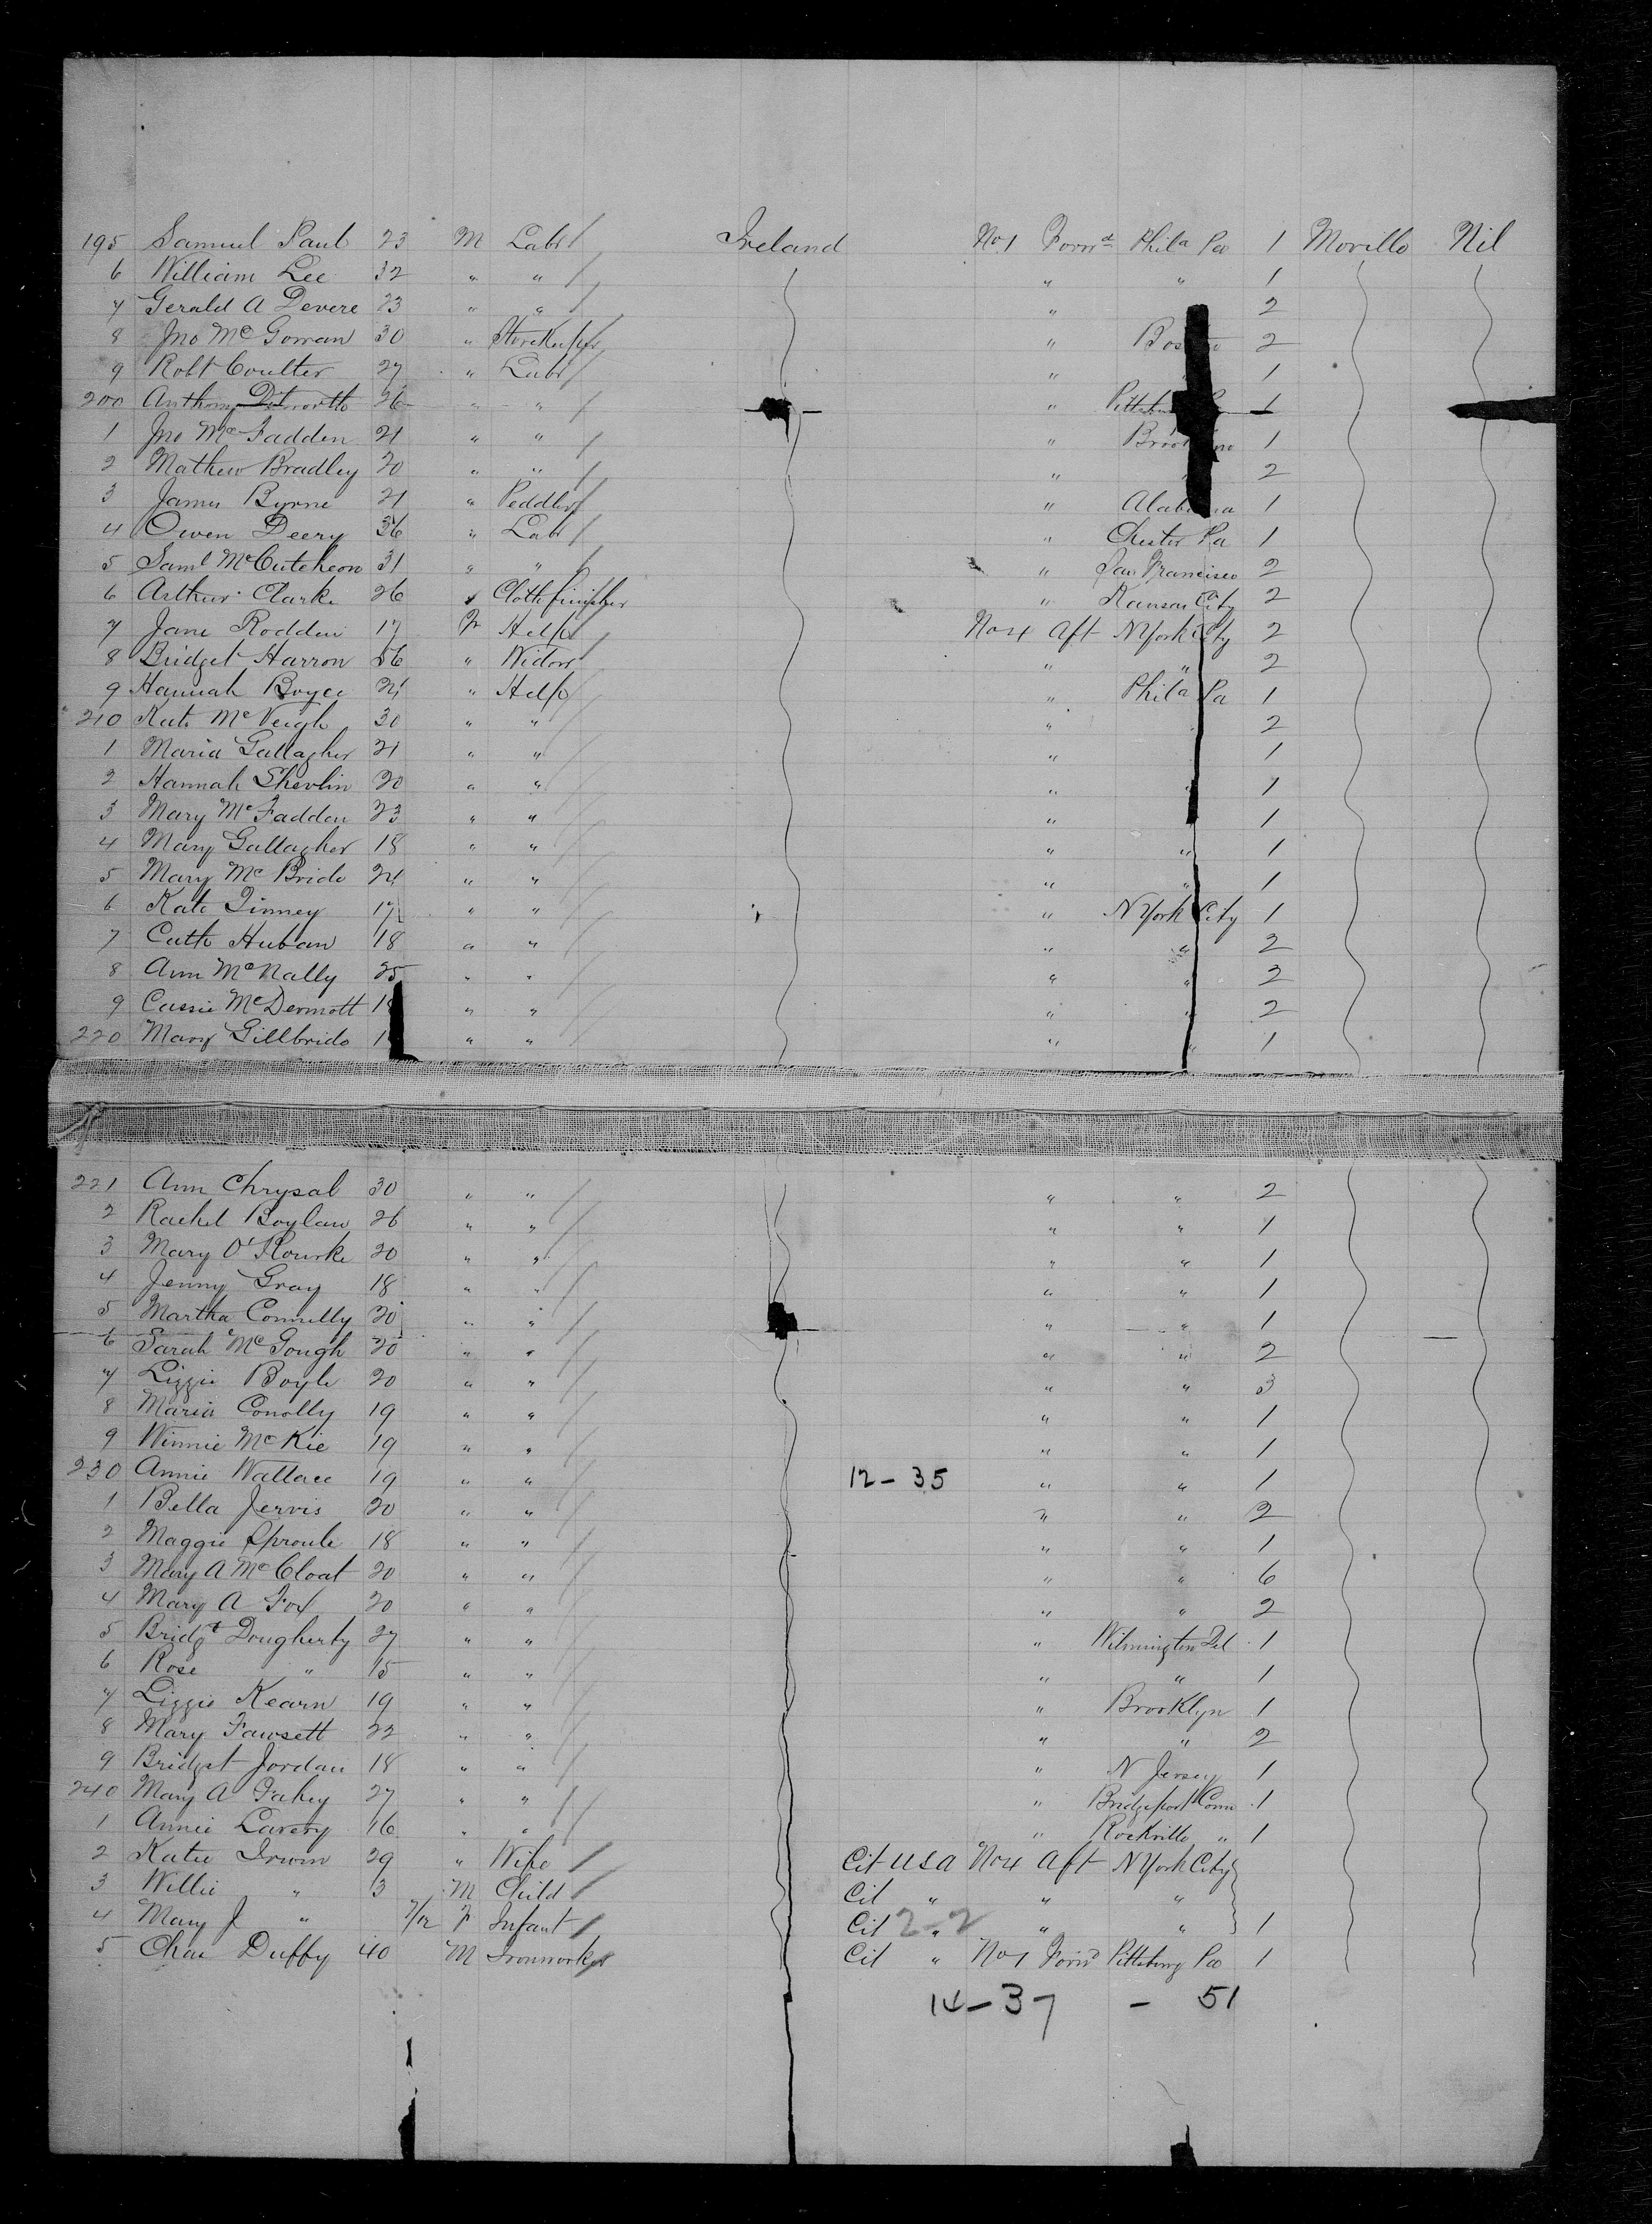 195 Samuel Paul 23 M Labr Ireland No 1 Forwd Phila Pa 1 Moville Nil
6 William Lee 32 " " " " 1
7 Gerald A Devere 23 " " " 2
8 Jno McGowan 30 " Storekeeper " 2
9 Robt Coulter 27 " Labr " 1
200 Anthony 26 " " " 1
1 Jno McFadden 21 " " " 1
2 Mathew Bradley 20 " " " 2
3 James Byrne 21 " Peddler " Alabama 1
4 Owen Deery 36 " Labr " Chester Pa 1
5 Saml McCutcheon 31 " " " San Francisco 2
6 Arthur Clarke 26 " Cloth finisher " Kansas City 2
7 Jane Rodden 17 F Help No 4 Aft N York City 2
8 Bridget Harron 56 " Widow " " 2
9 Hannah Boyce " Help " Phila Pa 1
210 Kate McVeigh 30 " " " 2
1 Maria Gallagher 21 " " " 1
2 Hannah Shevlin 20 " " " " 1
3 Mary McFadden 23 " " " 1
4 Mary Gallagher 18 " " " " 1
5 Mary McBride " " " " 1
6 Kate Tinney 17 " " " N York City 1
7 Cath Huban 18 " " " " 2
8 Ann McNally 25 " " " " 2
9 Cassie McDermott " " " " 2
220 Mary Gillbride " " " " 1
221 Ann Chrysal 30 " " " " 2
2 Rachel Boylan 26 " " " " 1
3 Mary O'Rourke 20 " " " " 1
4 Jenny Gray 18 " " " " 1
5 Martha Connelly 20 " " " " 1
6 Sarah McGough 20 " " " " 2
7 Lizzie Boyle 20 " " " " 3
8 Maria Conolly 19 " " " " 1
9 Winnie McKie 19 " " " " 1
230 Annie Wallace 19 " " 12 - 35 " " 1
1 Bella Jervis 20 " " " " 2
2 Maggie Sproule 18 " " " " 1
3 Mary A McCloat 20 " " " " 6
4 Mary A Fox 20 " " " " 2
5 Bridgt Dougherty 27 " " " Wilmington Del 1
6 Rose " 15 " " " " 1
7 Lizzie Kearn 19 " " " Brooklyn 1
8 Mary Fawsett 22 " " " " 2
9 Bridget Jordan 18 " " " N Jersey 1
240 Mary A Fahey 27 " " " Bridgeport Conn 1
1 Annie Lavery 16 " " " Rockville " 1
2 Katie Irwin 29 " Wife Cit USA No 4 Aft N York City
3 Willie " 3 M Child Cit " " "
4 Mary J " 7/12 F Infant Cit " 2-2 " " 1
5 Chas Duffy 40 M Ironworker Cit " No 1 Forwd Pittsburg Pa 1
14 - 37 - 51